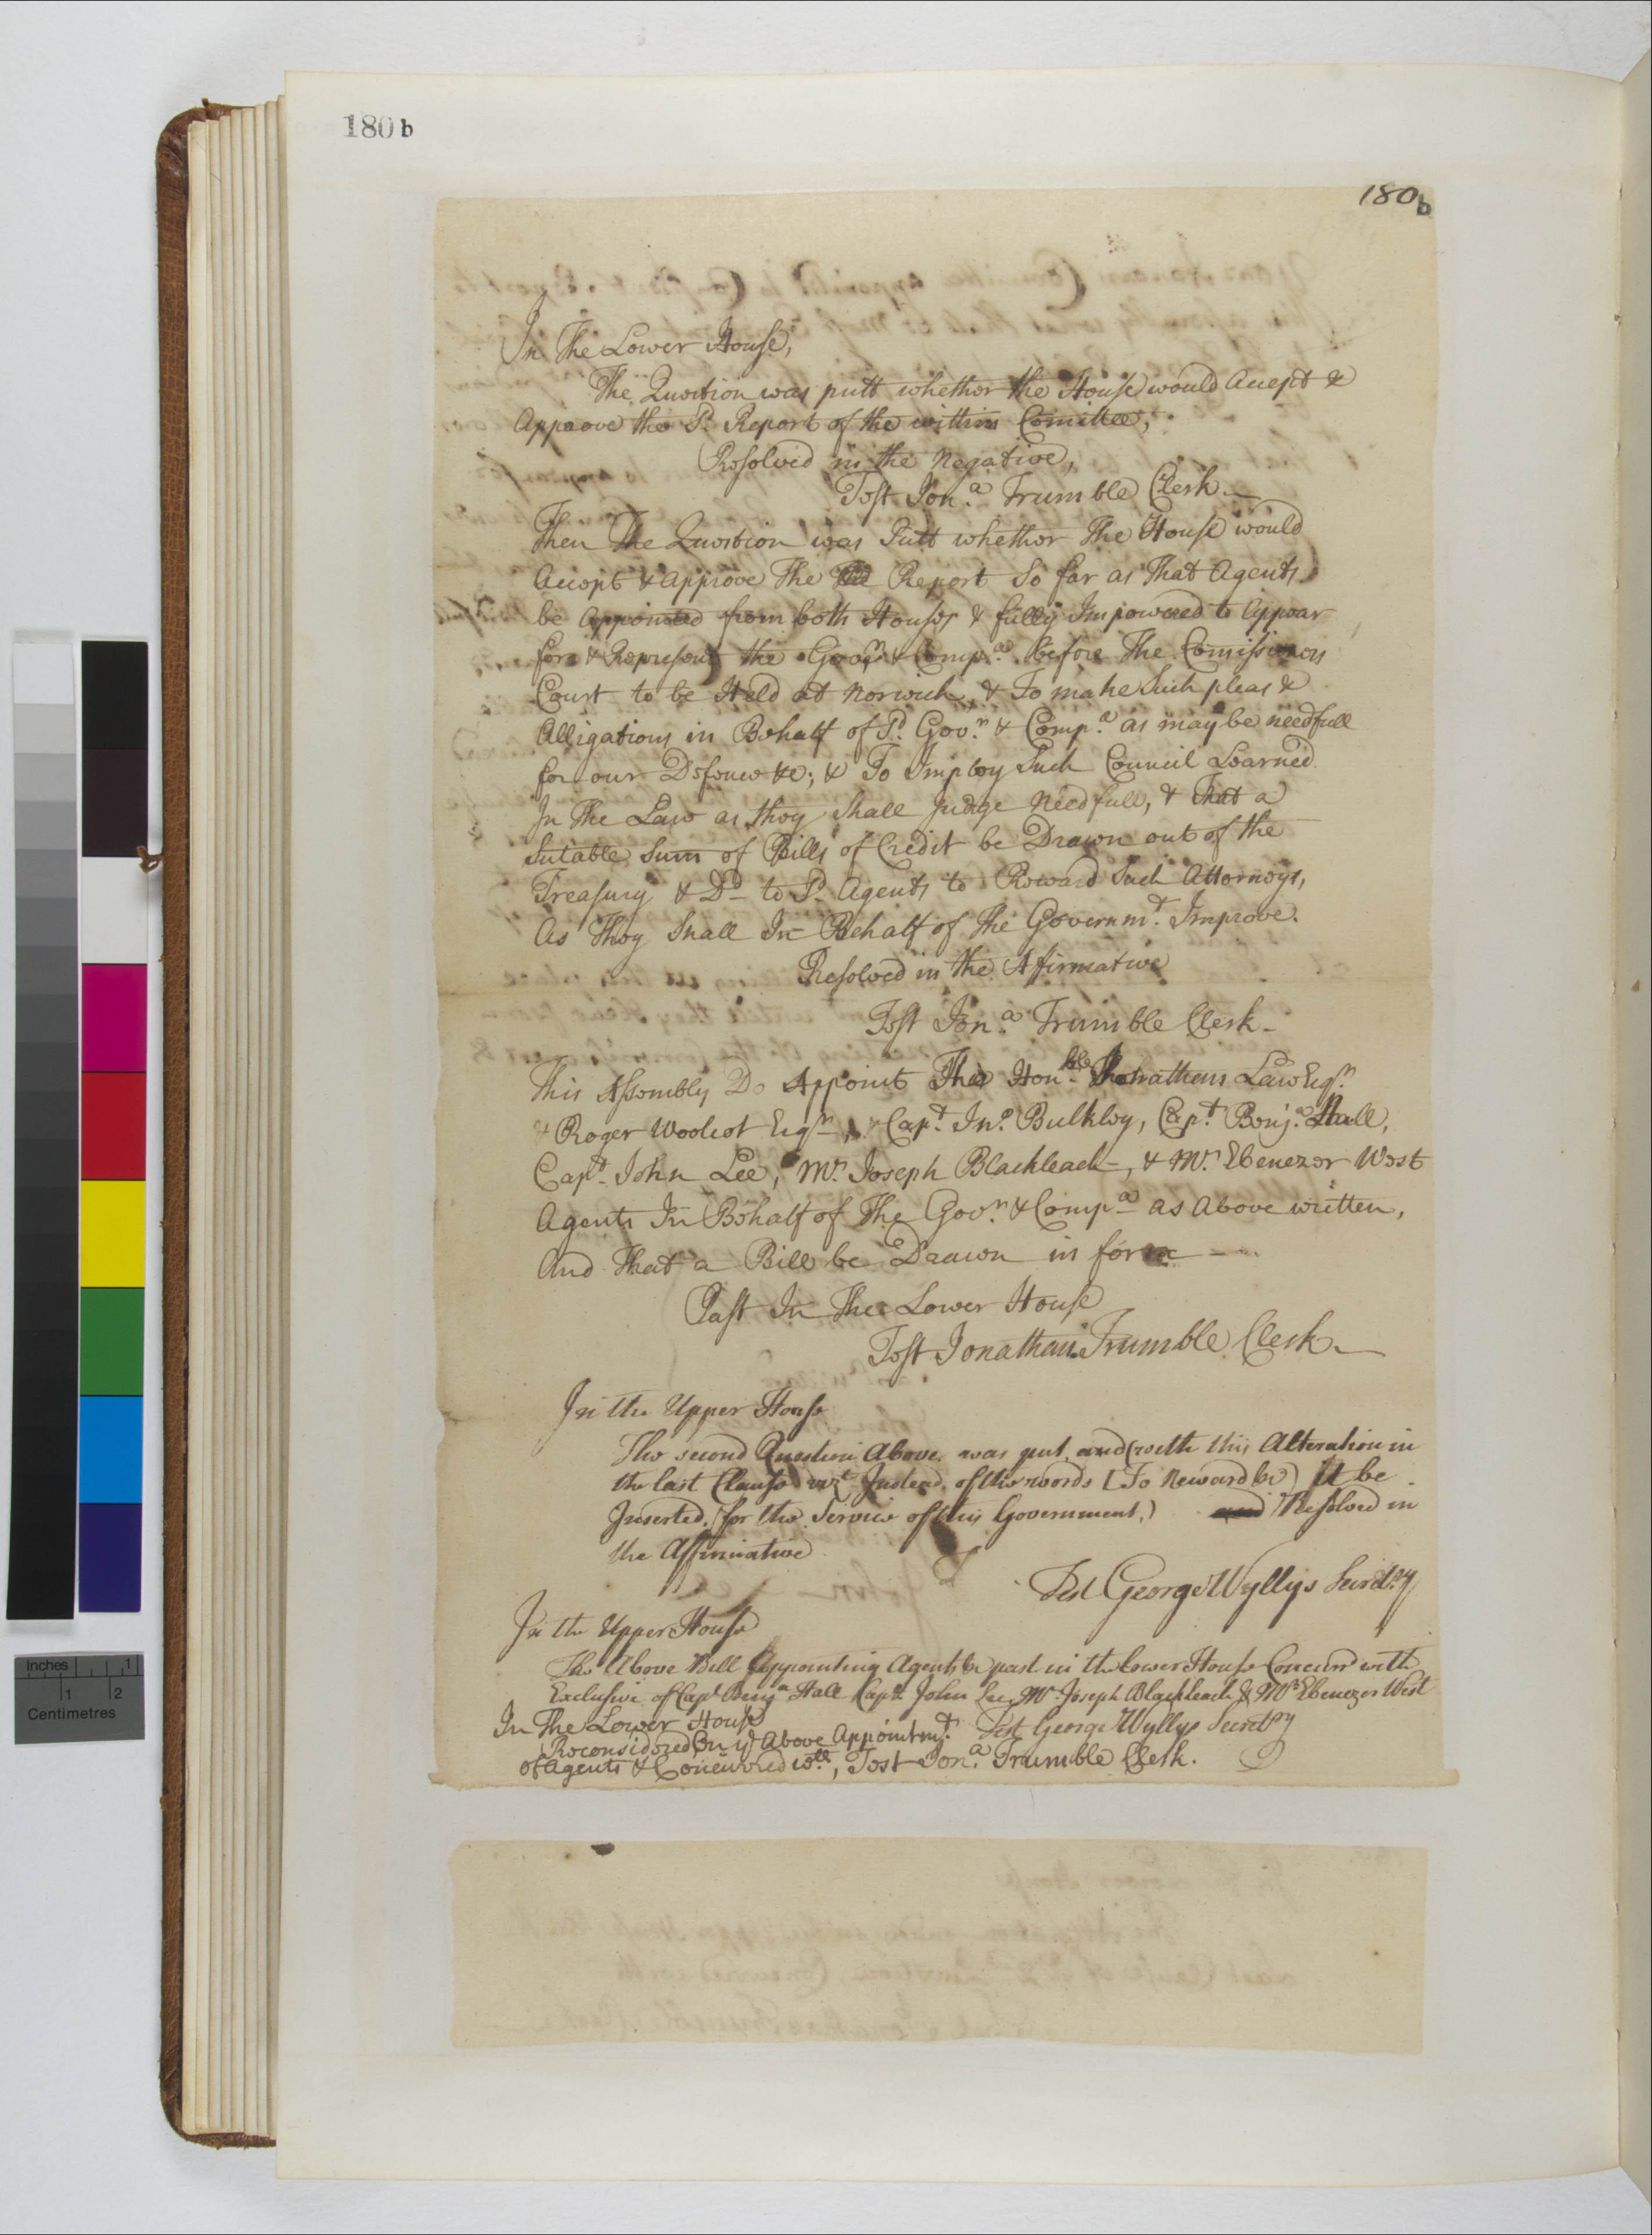 180 b
180b
In The Lower House,
The Question was putt whether the House would Accept &
Approve the Sd. Report of the within Comittee,
Resolved in the Negative,
Test Jona. Trumble Clerk
Then The Question was Putt whether The House would
Accept & approve The Report So far as That Agents
be Appointed from both Houses & fully Impowered to Appear
for & Represent the Govr. & Compa. before The Comissioners
Court to be Held at Norwich, & To make Such pleas &
Alligations in Behalf of Sd. Govr. & Compa. as may be needfull
for our Defence &c; & To Imploy Such Council Learned
In The Law as they Shall Judge Needfull, & That a
Sutable Sum of Bills of Credit be Drawn out of the
Treasury & Dd to Sd. Agents to Reward Such Attorneys,
As They Shall In Behalf of The Governmt. Improve.
Resolved in the Affirmative
Test Jona. Trumble Clerk
This Assembly Do Appoint The Honble. Jonathan Law Esqr.
& Roger Woolcot Esqr, & Capt. Jno. Bulkley, Capt. Benja. Hall,
Capt John Lee, Mr. Joseph Blackleach, & Mr. Ebenezer West
Agents In Behalf of The Govr. & Compa as Above written,
And That a Bill be Drawn in form
Past In The Lower House
Test Jonathan Trumble Clerk
In the Upper House
The second Question Above was put and (with this Alteration in
the last Clause vizt Instead of the words [To Reward &c) it be
Inserted (for the Service of this Government.) Resolved in
the Affirmative
Test George Wyllys Secretry
In the Upper House
The Above Bill Appointing Agents &c past in the lower House Concurr'd with
Exclusive of Capt Benja Hall Capt John Lee Mr Joseph Blackleach & Mr Ebenezer West
Test George Wyllys Secretry
In The Lower House
Reconsidered On ye Above Appointmt.
of Agents & Concurred wth, Test Jona. Trumble Clerk.
Inches 1
1 2
Centimetres